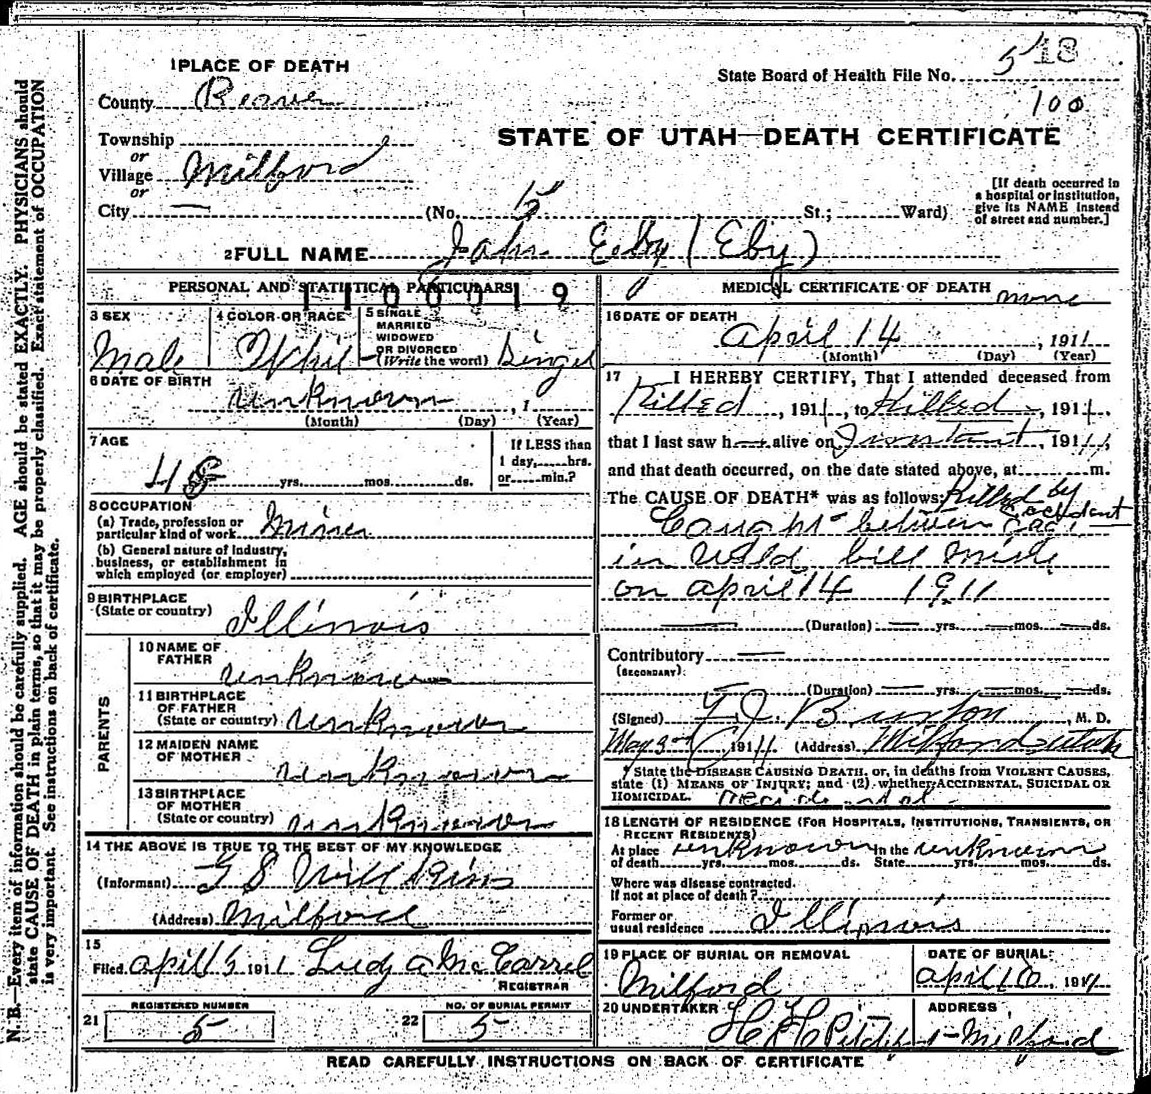 518
100
1 PLACE OF DEATH
State Board of Health File No.
County Beaver
STATE OF UTAH—DEATH CERTIFICATE
Township
or
Village Milford
or
City — (No. 5 St.; Ward)
[If death occurred in
a hospital or institution,
give its NAME instead
of street and number.]
2 FULL NAME John (Eby)
PERSONAL AND STATISTICAL PARTICULARS
1100019
3 SEX
Male
4 COLOR OR RACE
White
5 SINGLE
MARRIED
WIDOWED
OR DIVORCED
(Write the word) Singel
6 DATE OF BIRTH
unknown , 1
(Month) (Day) (Year)
7 AGE
48 yrs. mos. ds.
If LESS than
1 day, hrs.
or min.?
8 OCCUPATION
(a) Trade, profession or
particular kind of work Miner
(b) General nature of industry,
business, or establishment in
which employed (or employer)
9 BIRTHPLACE
(State or country) Illinois
PARENTS
10 NAME OF
FATHER unknown
11 BIRTHPLACE
OF FATHER
(State or country) unknown
12 MAIDEN NAME
OF MOTHER unknown
13 BIRTHPLACE
OF MOTHER
(State or country) unknown
14 THE ABOVE IS TRUE TO THE BEST OF MY KNOWLEDGE
(Informant) G S Willkins
(Address) Milford
15
Filed april 1911 Ludy a McCarrel
REGISTRAR
REGISTERED NUMBER
21 5
NO. OF BURIAL PERMIT
22 5
MEDICAL CERTIFICATE OF DEATH
16 DATE OF DEATH
April 14 , 1911
(Month) (Day) (Year)
17 I HEREBY CERTIFY, That I attended deceased from
Killed , 1911, to Killed , 1911,
that I last saw h— alive on Instant , 1911,
and that death occurred, on the date stated above, at m.
The CAUSE OF DEATH* was as follows: Killed by
accident
Caught between
in Wild bill Mine
on april 14 1911
(Duration) — yrs. — mos. — ds.
Contributory —
(SECONDARY)
(Duration) — yrs. — mos. — ds.
(Signed) Burton , M. D.
May 3rd 1911. (Address) Milford Utah
* State the DISEASE CAUSING DEATH, or, in deaths from VIOLENT CAUSES,
state (1) MEANS OF INJURY; and (2) whether ACCIDENTAL, SUICIDAL OR
HOMICIDAL.
18 LENGTH OF RESIDENCE (FOR HOSPITALS, INSTITUTIONS, TRANSIENTS, OR
RECENT RESIDENTS)
At place unknown In the unknown
of death yrs. mos. ds. State yrs. mos. ds.
Where was disease contracted,
if not at place of death?
Former or
usual residence Illinois
19 PLACE OF BURIAL OR REMOVAL
Milford
DATE OF BURIAL:
april 16, 1911
20 UNDERTAKER
ADDRESS
Milford
READ CAREFULLY INSTRUCTIONS ON BACK OF CERTIFICATE
N. B.—Every item of information should be carefully supplied. AGE should be stated EXACTLY. PHYSICIANS should
state CAUSE OF DEATH in plain terms, so that it may be properly classified. Exact statement of OCCUPATION
is very important. See instructions on back of certificate.